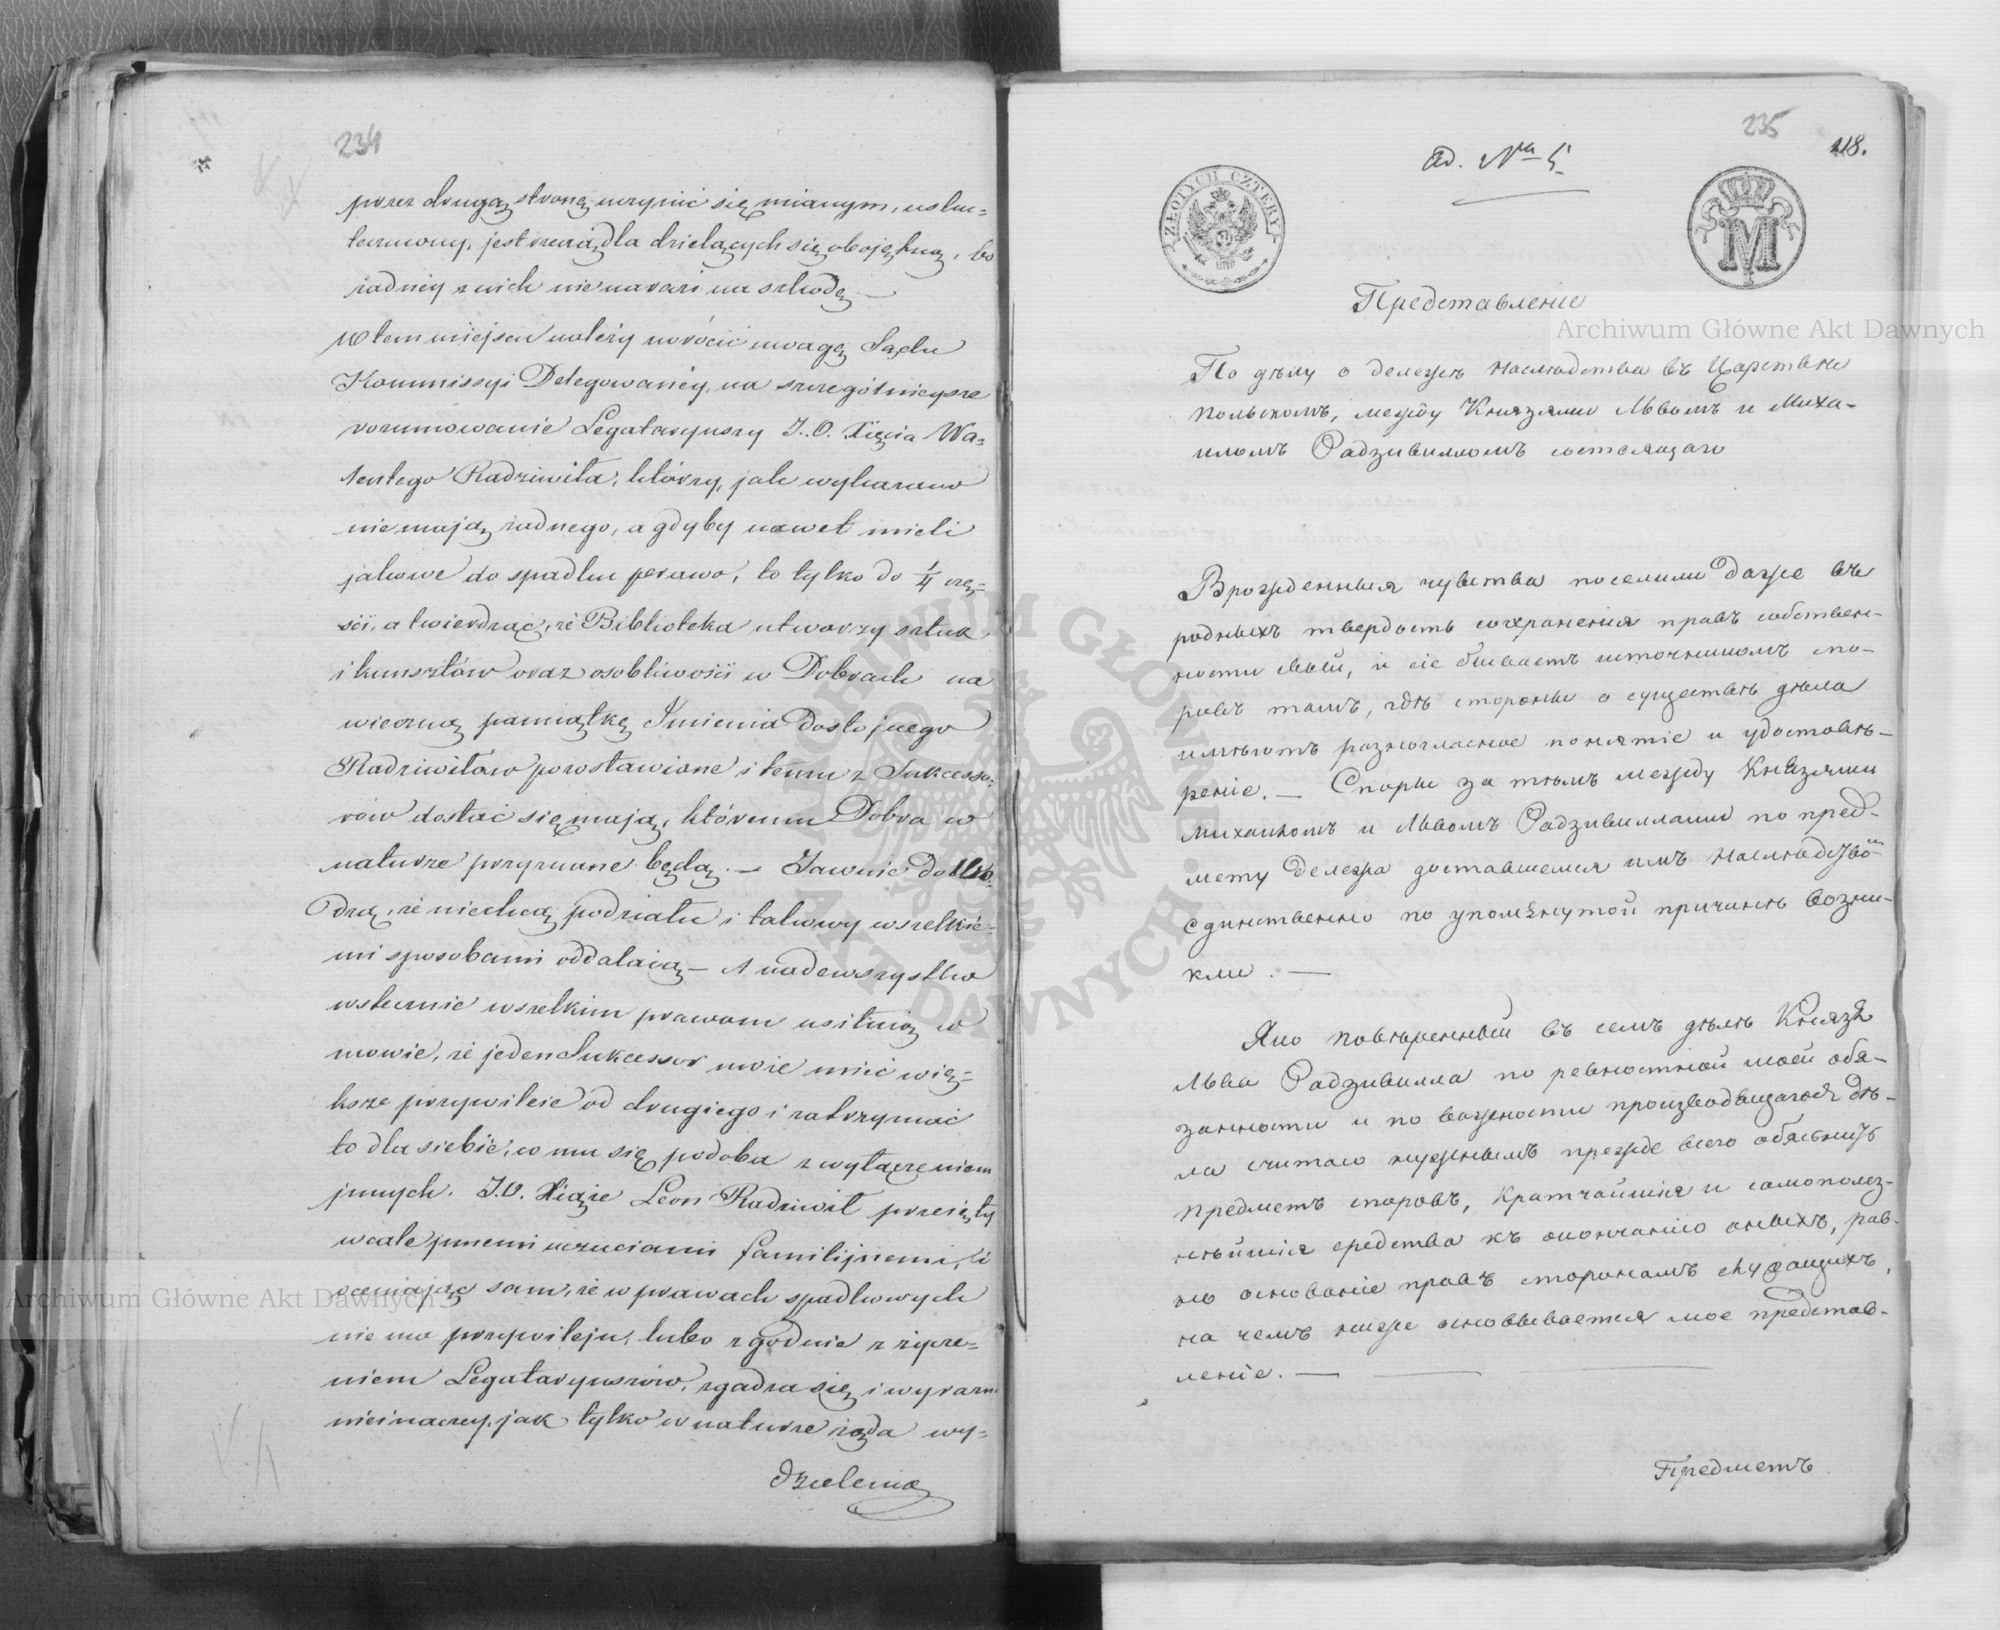 234
przez drugą stronę uczynić się mianym, usku=
teczniony, jest rzeczą dla dzielących się obojętną, bo
żadnéy z nich nie naraża na szkodę —
W tem miejscu należy zwrócić uwagę Sądu
Kommissyi Delegowanéy, na szczególnieysze
rozumowanie Legataryuszy J. O. Xięcia Wa=
lentego Radziwiłła, którzy, jak wykazano
nie mają żadnego, a gdyby nawet mieli
jakowe do spadku prawo, to tylko do ¼ czę=
ści, a twierdząc, że Biblioteka utworzy sztuk
i kunsztów oraz osobliwości w Dobrach na
wieczną pamiątkę Imienia Dostojnego
Radziwiłłów pozostawione i temu z Sukcesso=
rów dostać się mają, któremu Dobra w
naturze przyznane będą. — Jawnie do
, że niechcą podziału i takowy wszelkie=
mi sposobami oddalają — A nadewszystko
wstecznie wszelkim prawom usiłują w
mowie, że jeden Sukcessor może mieć wię=
ksze przywileie od drugiego i zatrzymać
to dla siebie, co mu się podoba z wyłączeniem
innych. J. O. Xiąże Leon Radziwił przejęty
wcale innemi uczuciami familijnemi, i
oceniając sam, że w prawach spadkowych
nie ma przywileju, lubo zgodnie z życze=
niem Legataryuszów, zgadza się i wyraz
nieinaczey, jak tylko w naturze żąda wy=
dzielenia
235
118.
ad. Nra 5
ZŁOTYCH CZTERY
M
Представленіе
По дѣлу о дележѣ наслѣдства въ Царствѣ
Польскомъ, между Князями Львомъ и Миха-
иломъ Радзивилломъ состоящаго
Врожденныя чувства поселили даже въ
родныхъ твердость сохраненія правъ собствен-
ности своей, и сіе бываетъ источникомъ спо-
ровъ тамъ, гдѣ стороны о существѣ дѣла
имѣютъ разногласное понятіе и удостовѣ-
реніе. — Споры за тѣмъ между Князями
Михаиломъ и Львомъ Радзивиллами по пред-
мету дележа доставшемся имъ наслѣдство
единственно по упомянутой причинѣ возни-
кли. —
Яко повѣренный въ семъ дѣлѣ Князя
Льва Радзивилла по ревностной моей обя-
занности и по важности производящагося дѣ-
ла считаю нужнымъ прежде всего объяснить
предметъ споровъ, кратчайшія и самополез-
нѣйшія средства къ окончанію оныхъ, рав-
но основаніе правъ сторонамъ служащихъ,
на чемъ ниже основывается мое представ-
леніе. —
Предметъ
Archiwum Główne Akt Dawnych
Archiwum Główne Akt Dawnych
ARCHIWUM GŁÓWNE AKT DAWNYCH